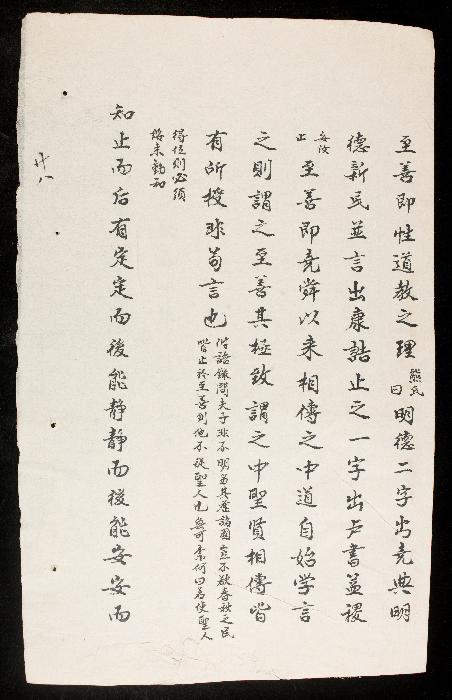 至善即性道教之理熊氏曰明德二字出尧典明
德新民並言出康誥止之一字出虞書益稷
安汝止至善即尭舜以来相傳之中道自始学言
之則謂之至善其極致謂之中聖贤相傳皆
有所授非苟言也語錄問夫子非不明
皆止於至善則他不從聖人也無可柰何曰若使聖人
得位則必須
知止而后有定定而後能静静而後能安安而
廿八